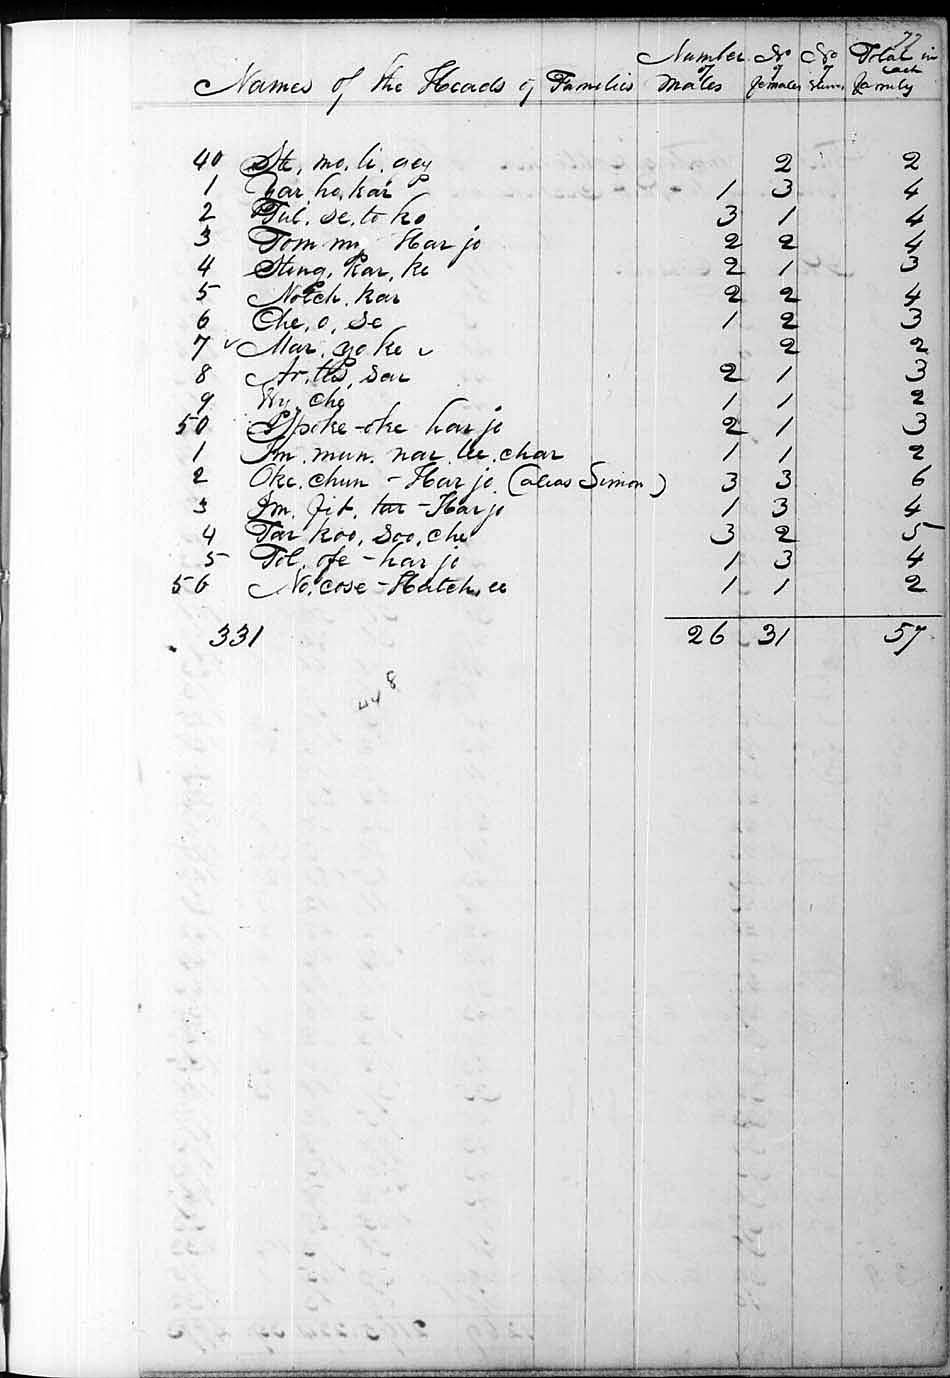 77
Names of the Heads of Families Number of Males No of females No of slaves Total in each family
40 Ste, mo, li, gey 2 2
1 Yar, ho, kar 1 3 4
2 Tul, se, to ko 3 1 4
3 Tom my Har jo 2 2 4
4 Sting, kar, ke 2 1 3
5 Notch, kar 2 2 4
6 Che, o, se 1 2 3
7 Mar, yo ke 2 2
8 sar 2 1 3
9 che 1 1 2
50 oke har jo 2 1 3
1 Im, mun, nar, lee, char 1 1 2
2 Oke, chun - Har jo (alias Simon) 3 3 6
3 Im, fit, tar - Harjo 1 3 4
4 Tar koo, soo, che 3 2 5
5 Tol, ofe - har jo 1 3 4
56 No, cose - Hatch, ee 1 1 2
331 26 31 57
448